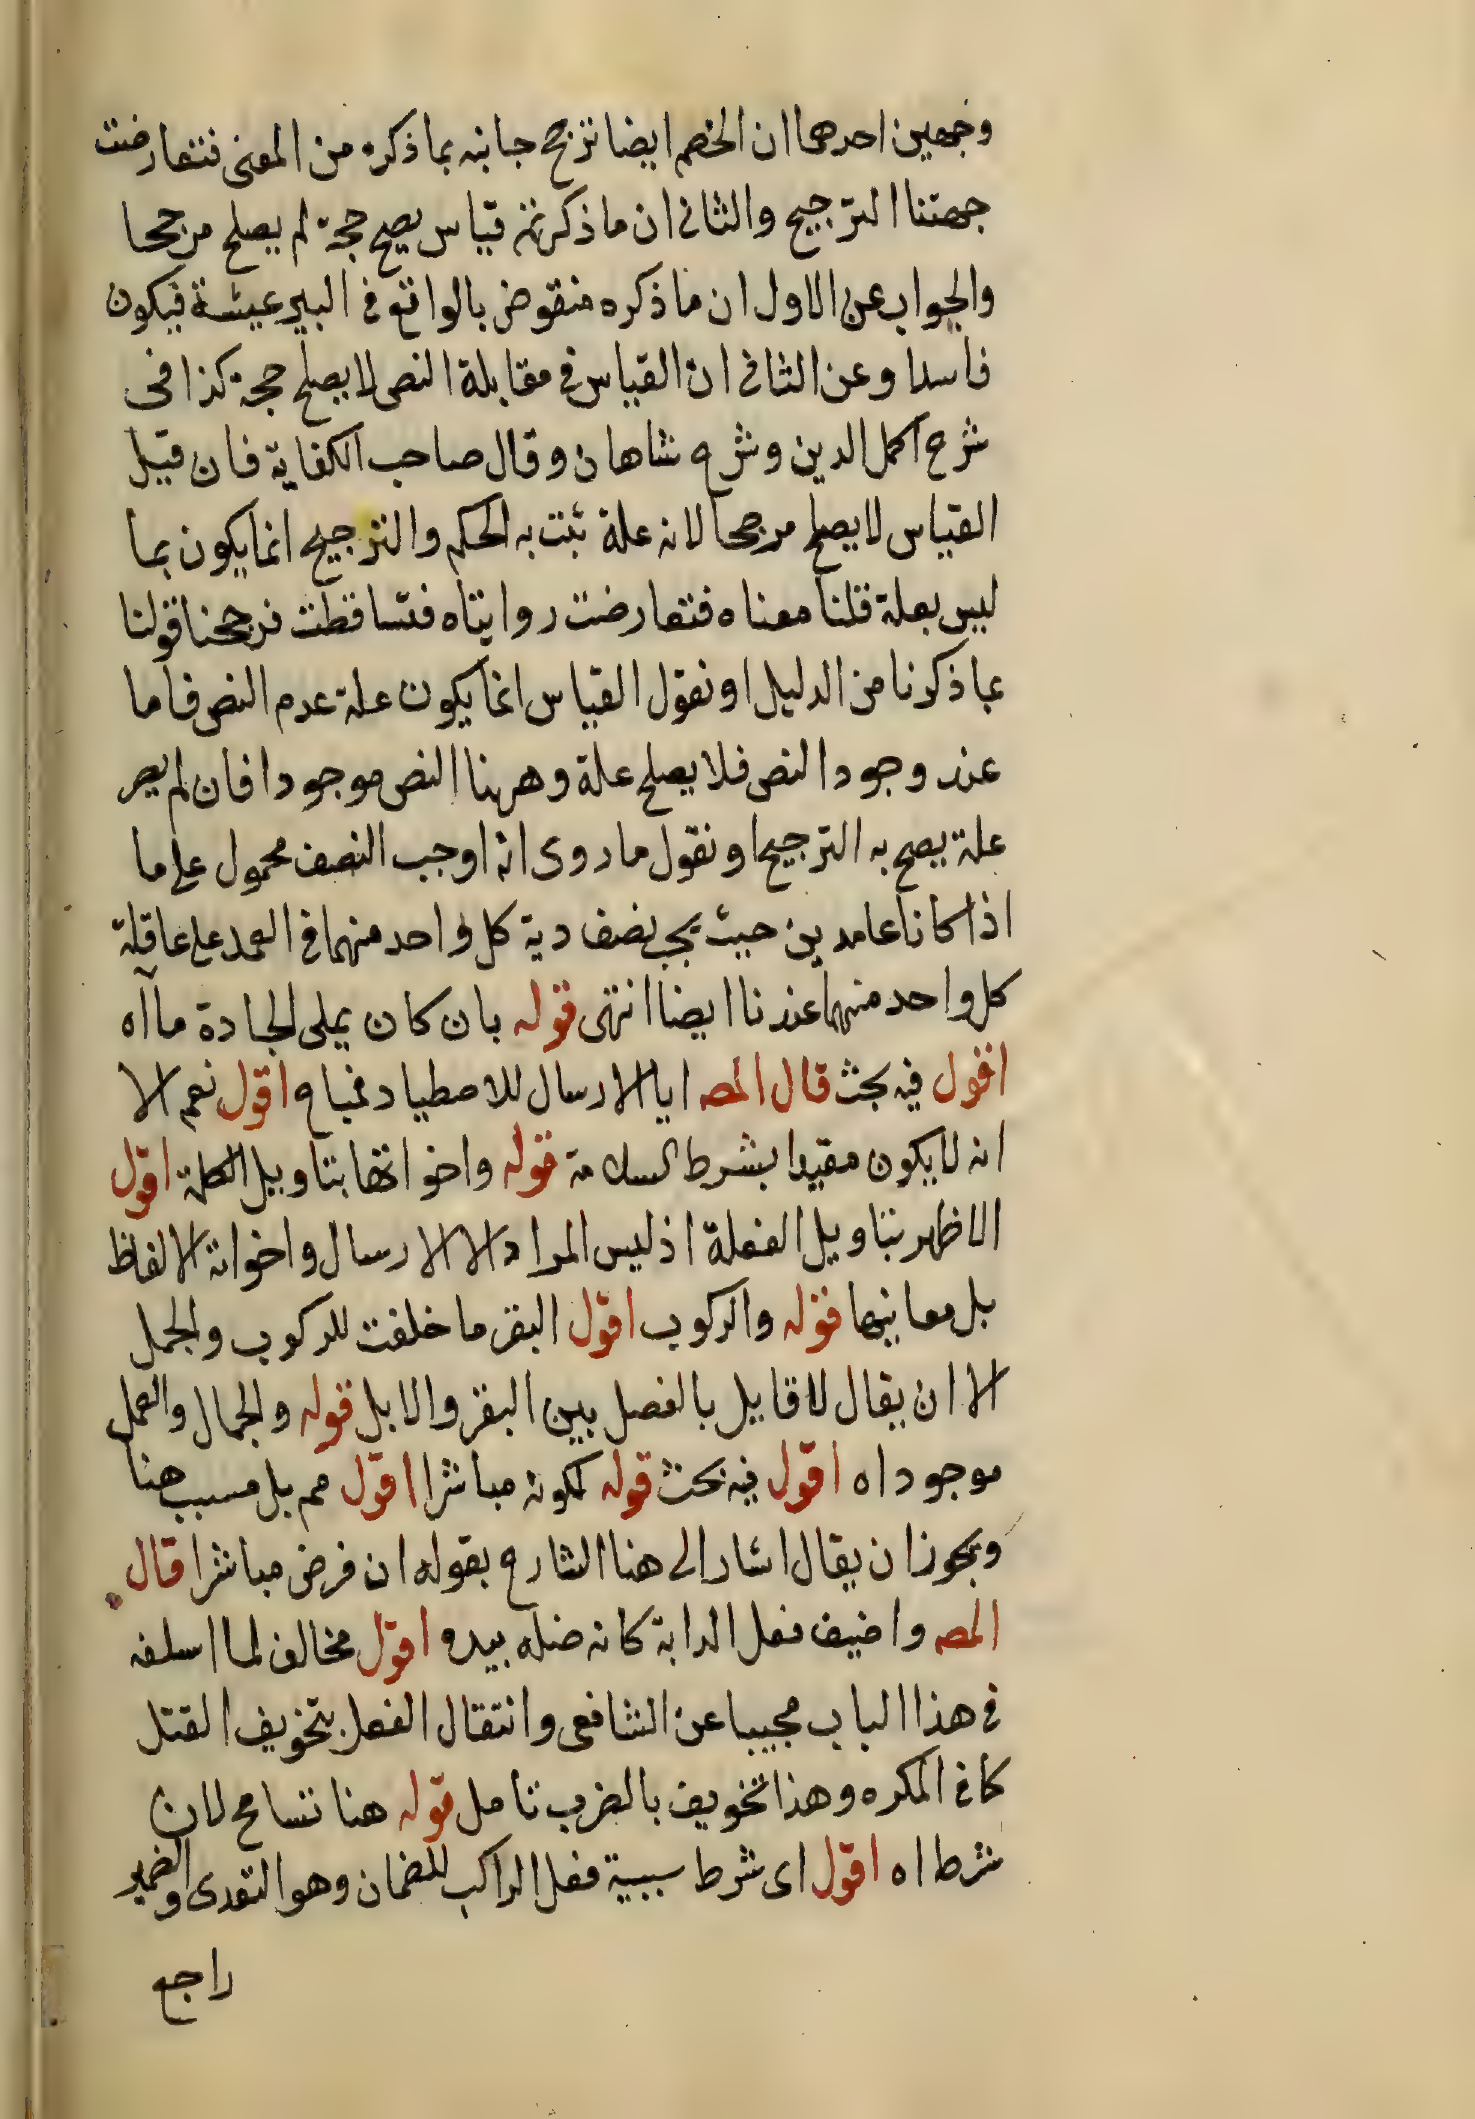 وجهين احدهما ان الخصم ايضا ترجح جانبه بما ذكره من المعنى فتعارضت
جهتنا الترجيح والثانى ان ما ذكرتم قياس يصح حجة لم يصلح مرجحا
والجواب عن الاول ان ما ذكره منقوض بالواقع فى البير عيشة فيكون
فاسدا وعن الثانى ان القياس فى مقابلة النص لا يصلح حجة كذا فى
شرح اكمل الدين وشرح شاهان وقال صاحب الكفاية فان قيل
القياس لا يصلح مرجحا لانه علة ثبت به الحكم والترجيح انما يكون بما
ليس بعلة قلنا معناه فتعارضت روايتاه فتساقطت فرجحنا قولنا
بما ذكرنا من الدليل او نقول القياس انما يكون علة عدم النص فاما
عند وجود النص فلا يصلح علة وههنا النص موجودا فان لم يصر
علة يصح به الترجيح او نقول ما روى انه اوجب النصف محمول على ما
اذا كانا عامدين حيث يجب نصف دية كل واحد منهما فى العمد على عاقلة
كل واحد منهما عندنا ايضا انتهى قوله بان كان يملى الجادة ماآه
اقول فيه بحث قال المصه ايا الارسال للاصطياد فمباح اقول نعم الا
انه لا يكون مقيدا بشرط السلامة قوله واخواتها بتاويل الكلمة اقول
الاظهر بتاويل الفعلة اذ ليس المراد الا الارسال واخواته الالفاظ
بل معانيها قوله والركوب اقول البقر ما خلقت للركوب والجمل
الا ان يقال لا قايل بالفصل بين البقر والابل قوله والجمال والعمل
موجود اه اقول فيه بحث قوله لكونه مباشرا اقول مم بل مسبب هنا
ويجوز ان يقال اشار الى هنا الشارح بقوله ان فرض مباشرا قال
المصه واضيف فعل الدابة كانه ضله بيده اقول مخالف لما اسلفه
فى هذا الباب مجيبا عن الشافعى وانتقال الفعل بتخويف القتل
كما فى المكره وهذا تخويف بالضرب تامل قوله هنا تسامح لان
شرط اه اقول اى شرط سببية فعل الراكب للضمان وهو التعدى والضمير
راجع